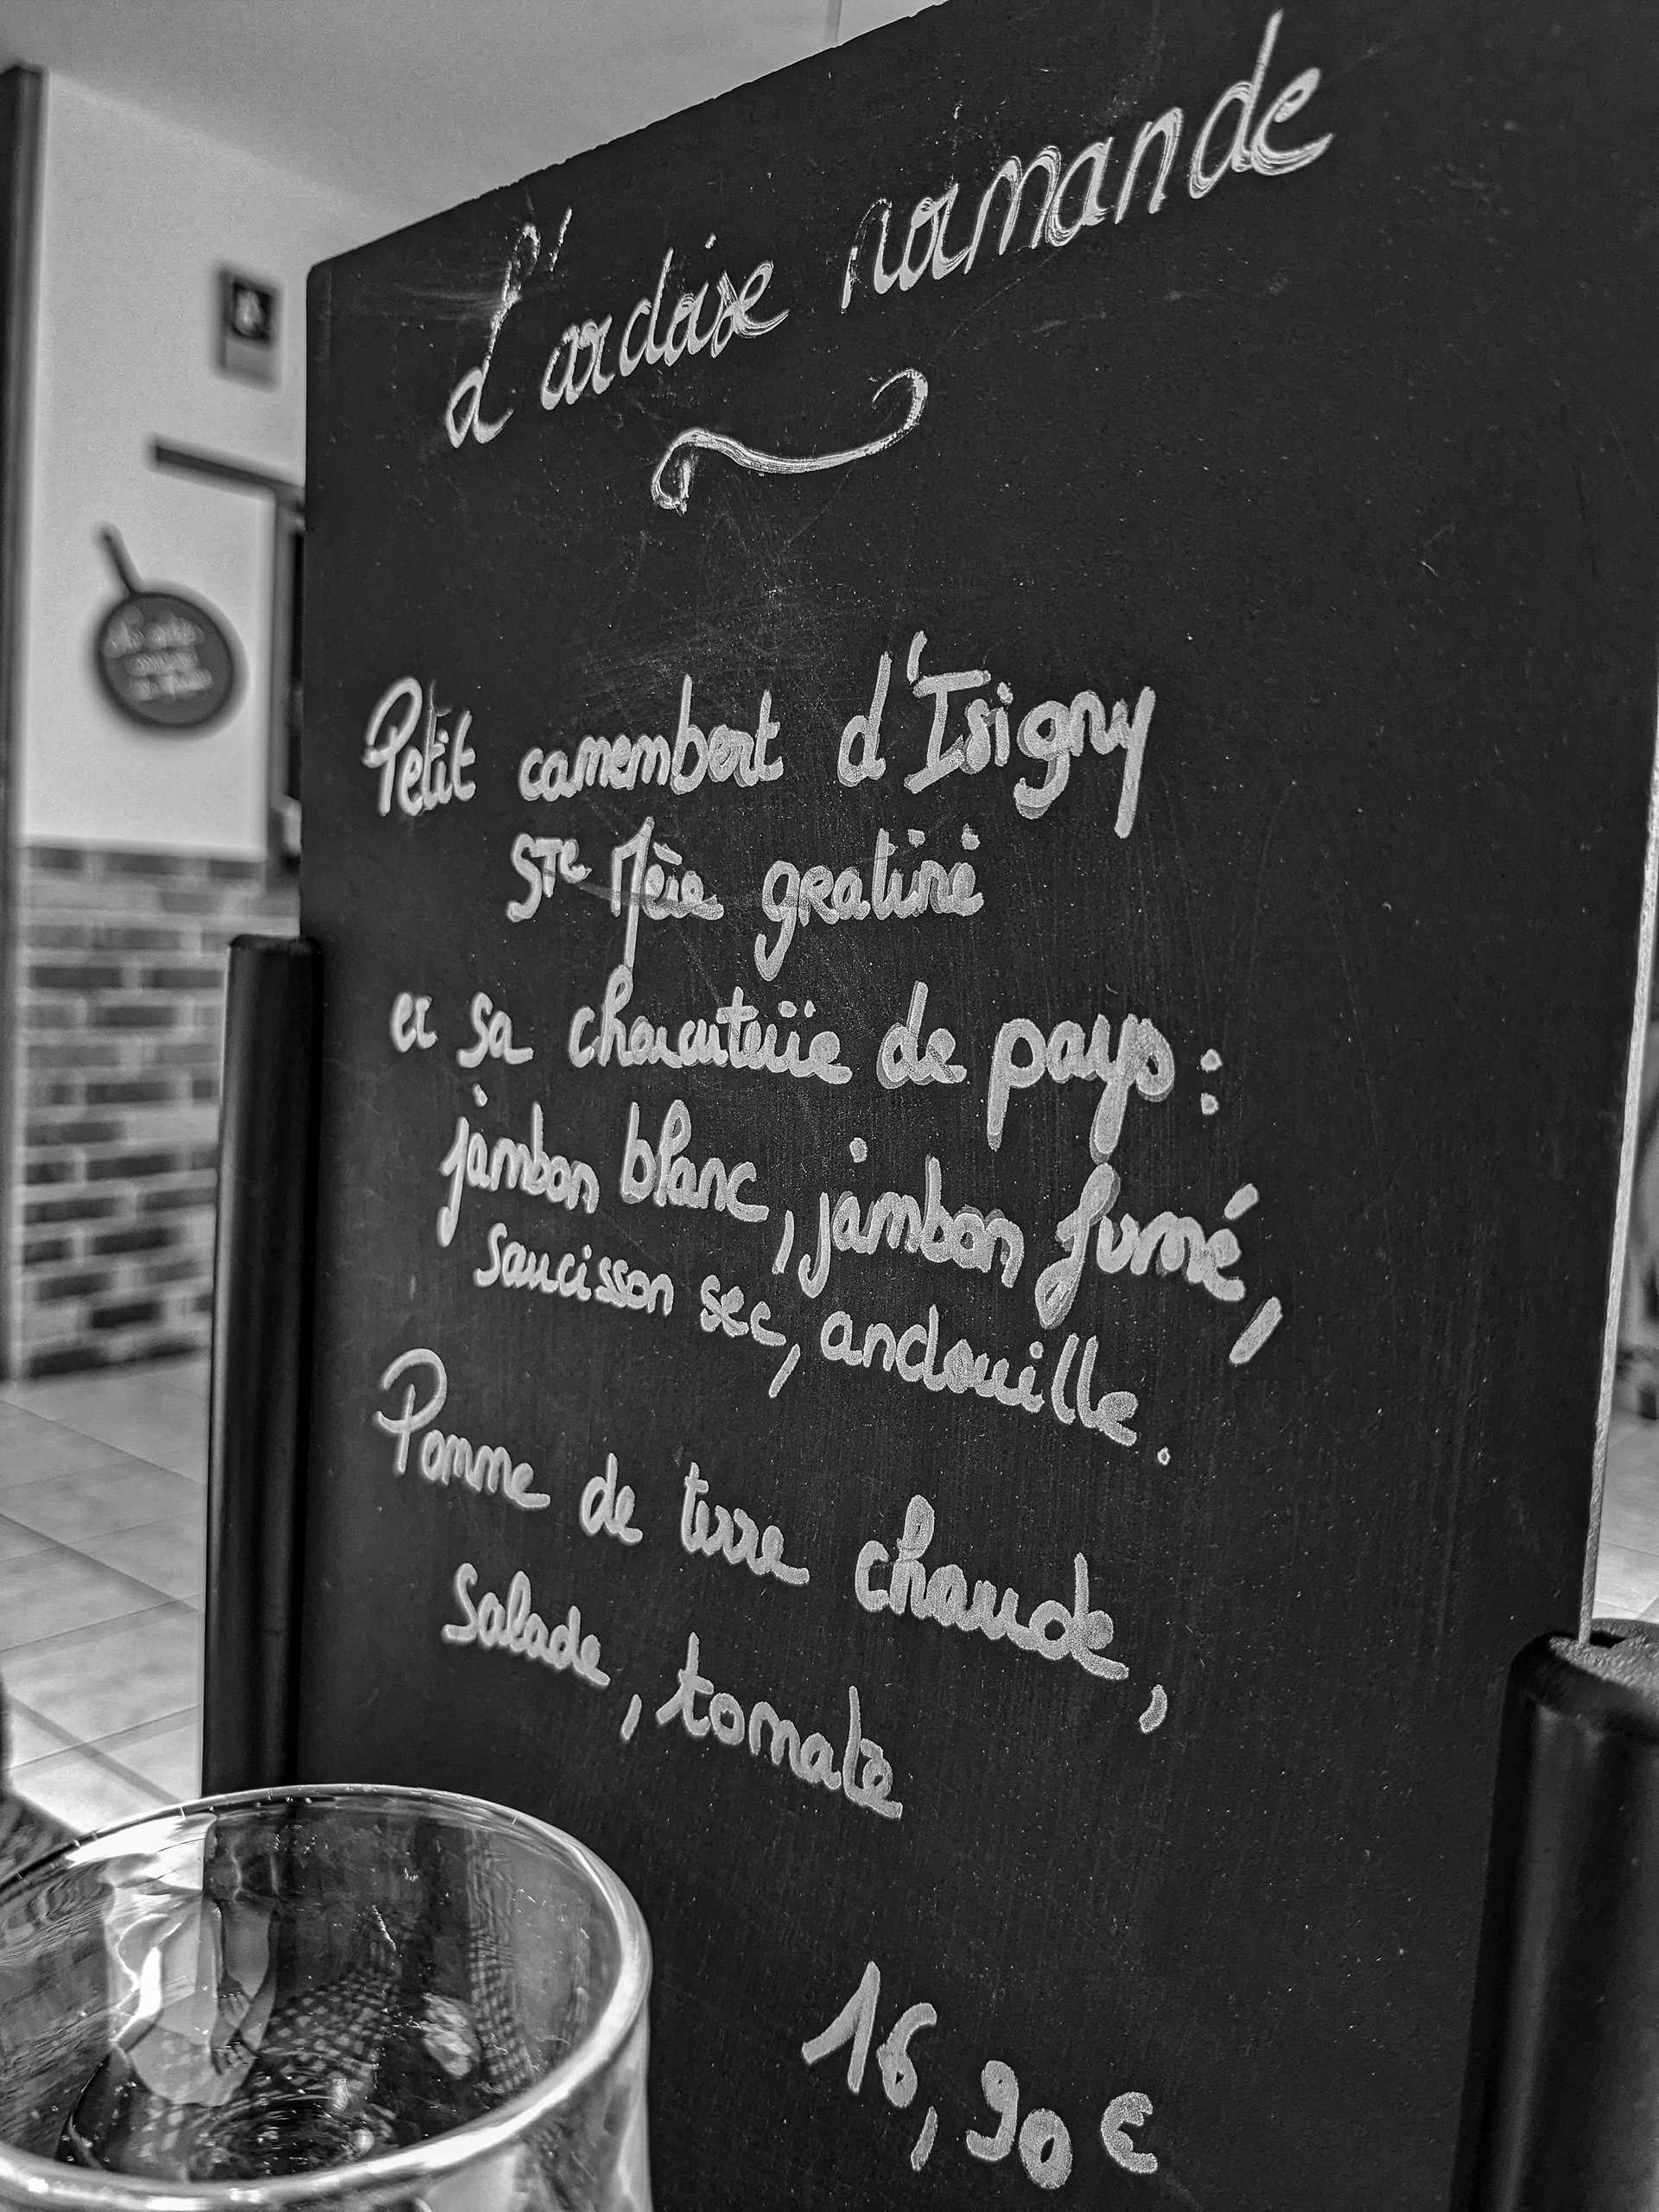 L'ardoise normande
Petit camembert d'Isigny
Ste Mère gratiné
et sa charcuterie de pays :
jambon blanc, jambon fumé,
saucisson sec, andouille.
Pomme de terre chaude,
Salade, tomate
16,90€